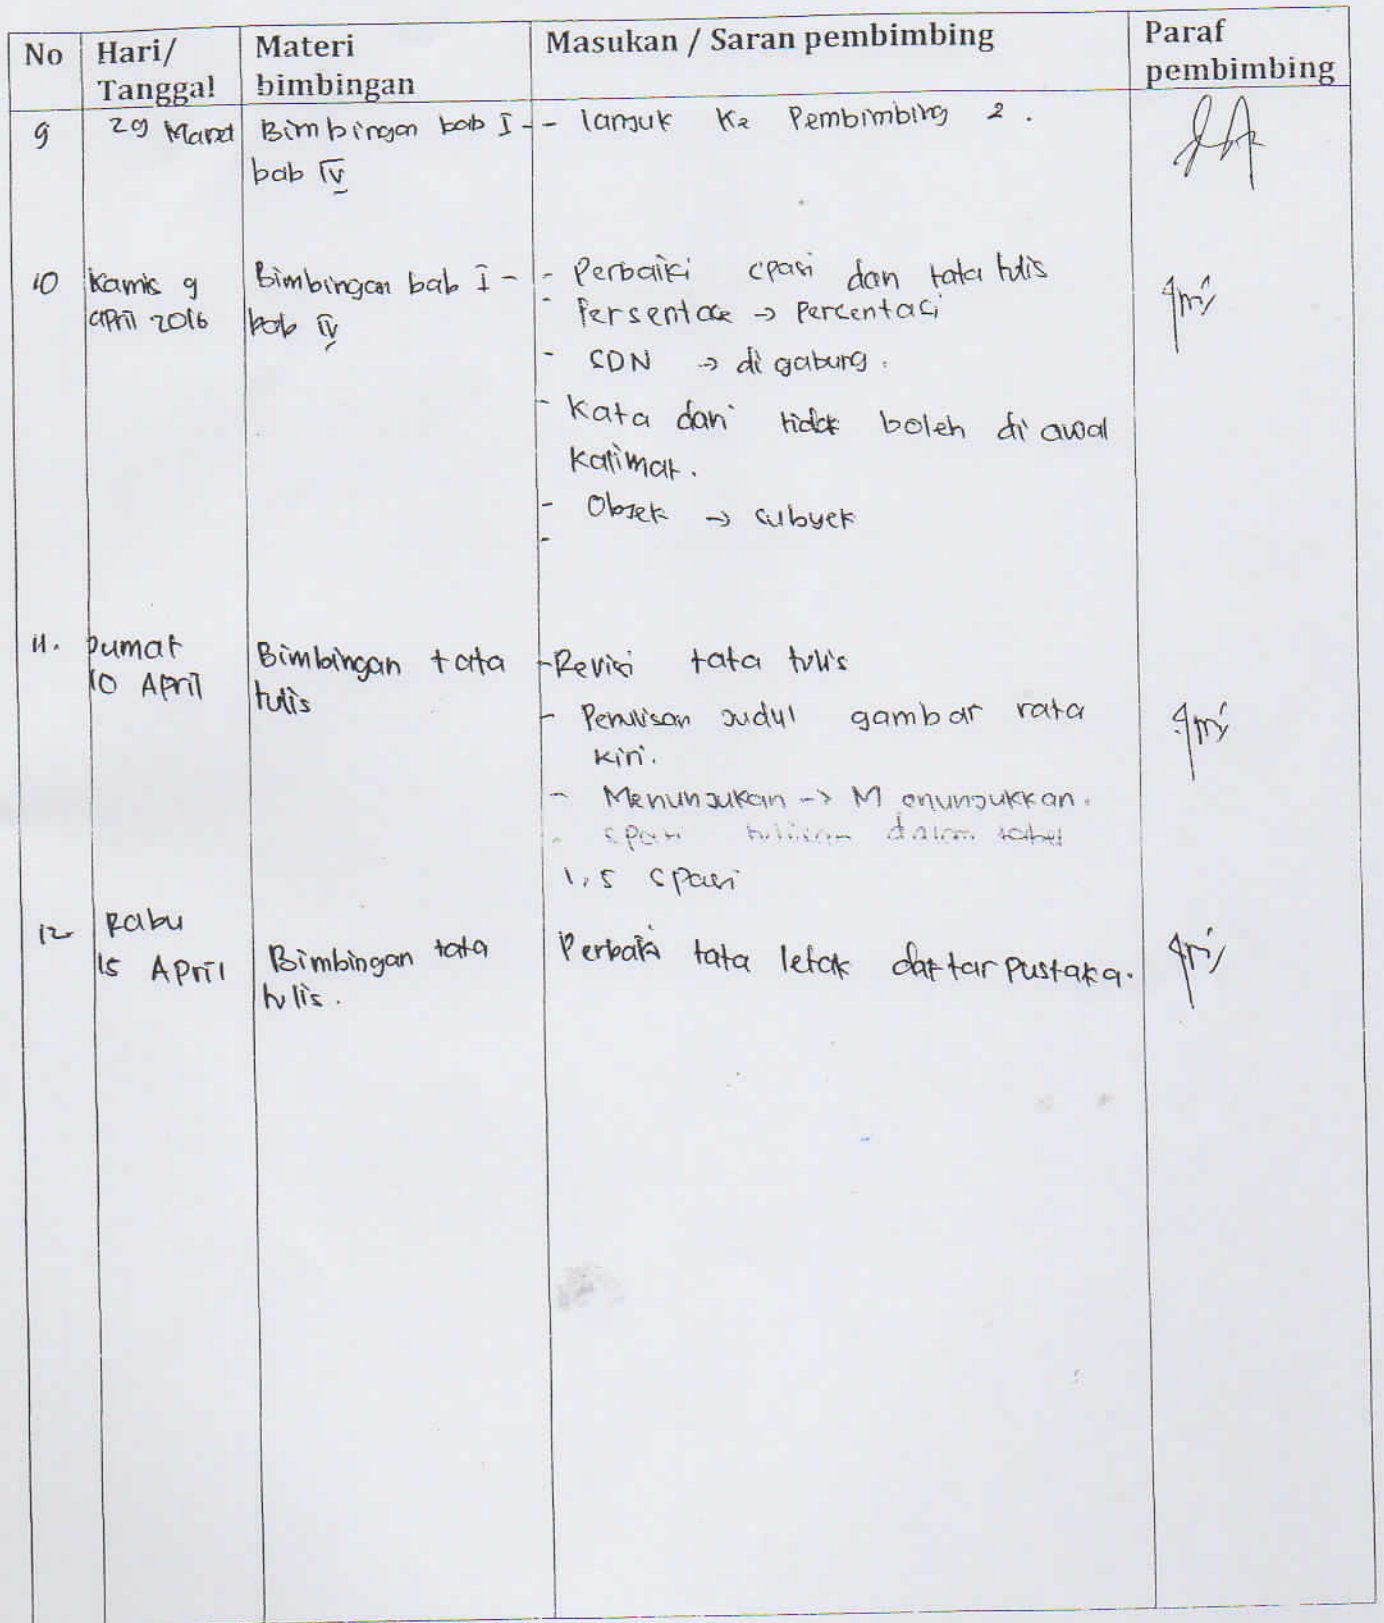 No Hari/ Tanggal Materi bimbingan Masukan / Saran pembimbing Paraf pembimbing
9 29 Maret Bimbingan bab I - - lanjut Ke Pembimbing 2 .
bab IV
10 Kamis 9 Bimbingan bab I - - Perbaiki spasi dan tata tulis
april 2016 bab IV - Persentase → Persentasi
- SDN → di gabung .
- Kata dari tidak boleh di awal
Kalimat .
- Objek → subyek
-
11. Jumat Bimbingan tata - Revisi tata tulis
10 April tulis
- Penulisan judul gambar rata
kiri.
- Menunjukan -> Menunjukkan.
- spasi tulisan dalam tabel
1,5 spasi
12 Rabu
15 April Bimbingan tata Perbaiki tata letak daftar pustaka.
tulis .